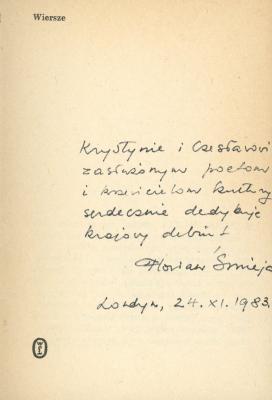 Wiersze
Krystynie i Czesławowi
zasłużonym poetom
i krzewicielom kultury
serdecznie dedykuję
krajowy debiut
Florian Śmieja
Londyn, 24. XI. 1983.